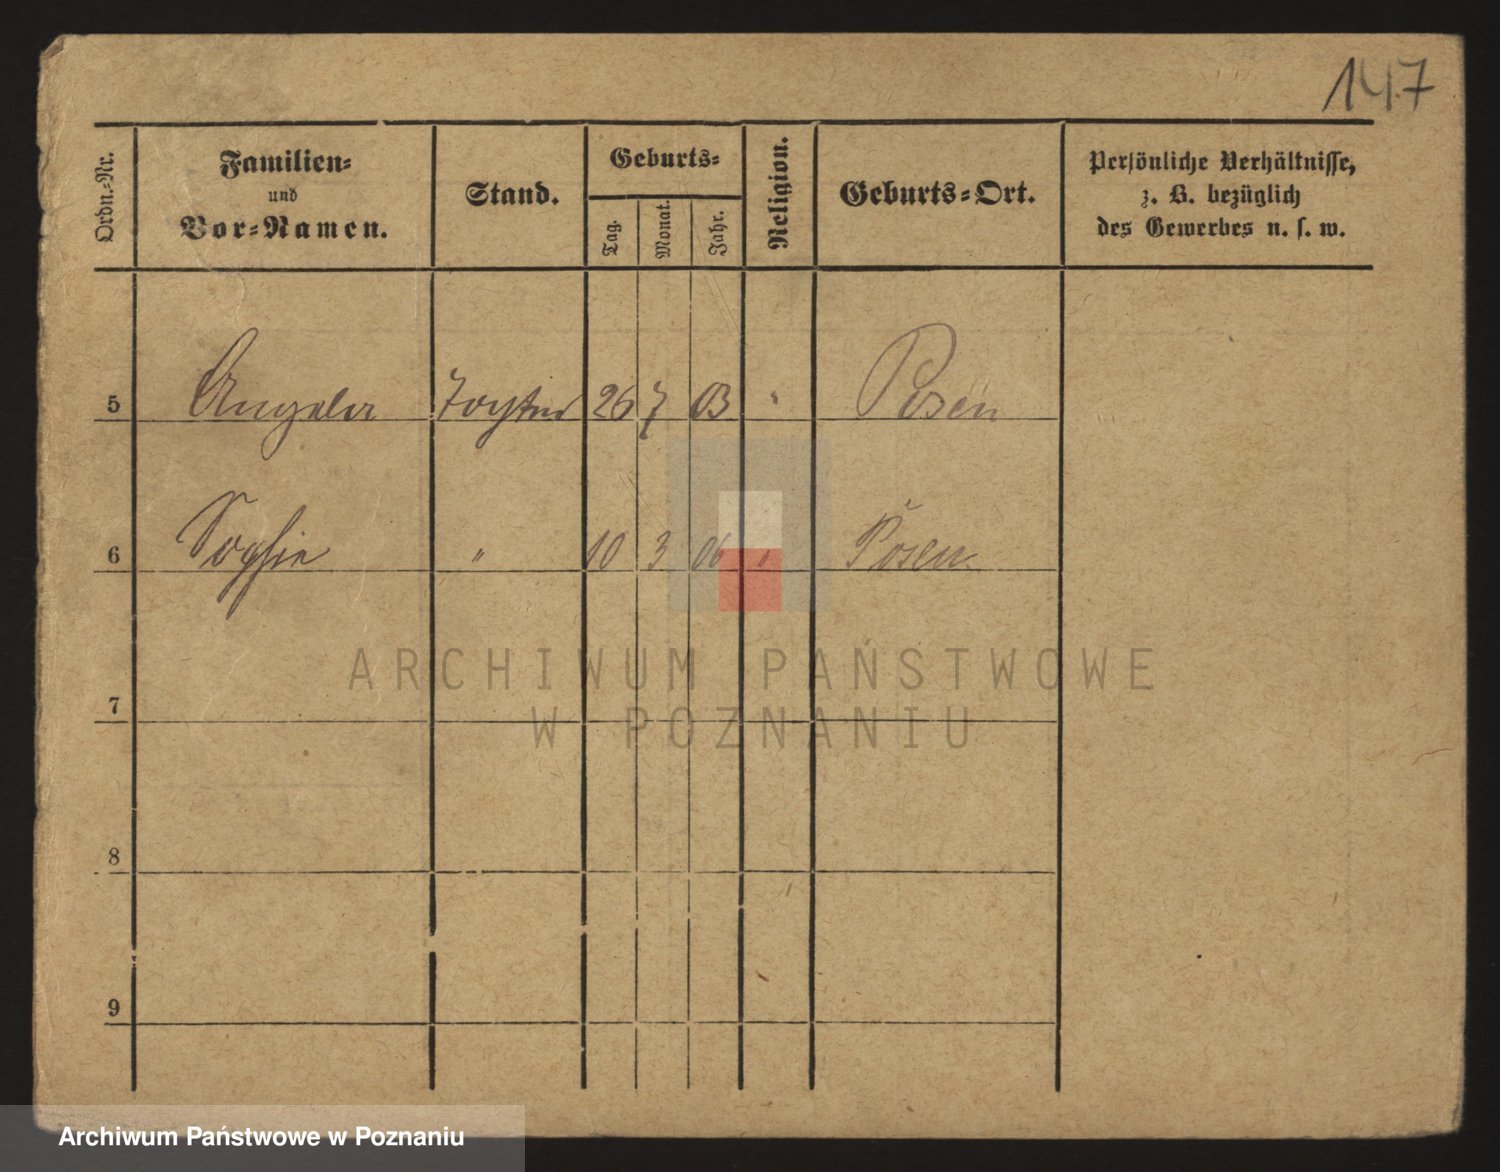 147
Ordn.-Nr.
Familien-
und
Vor-Namen.
Stand.
Geburts-
Tag.
Monat.
Jahr.
Religion.
Geburts-Ort.
Persönliche Verhältnisse,
z. B. bezüglich
des Gewerbes u. s. w.
5 Angela 26 7 03 " Posen
6 Sophie " 10 3 06 " Posen
7
8
9
ARCHIWUM PAŃSTWOWE
W POZNANIU
Archiwum Państwowe w Poznaniu